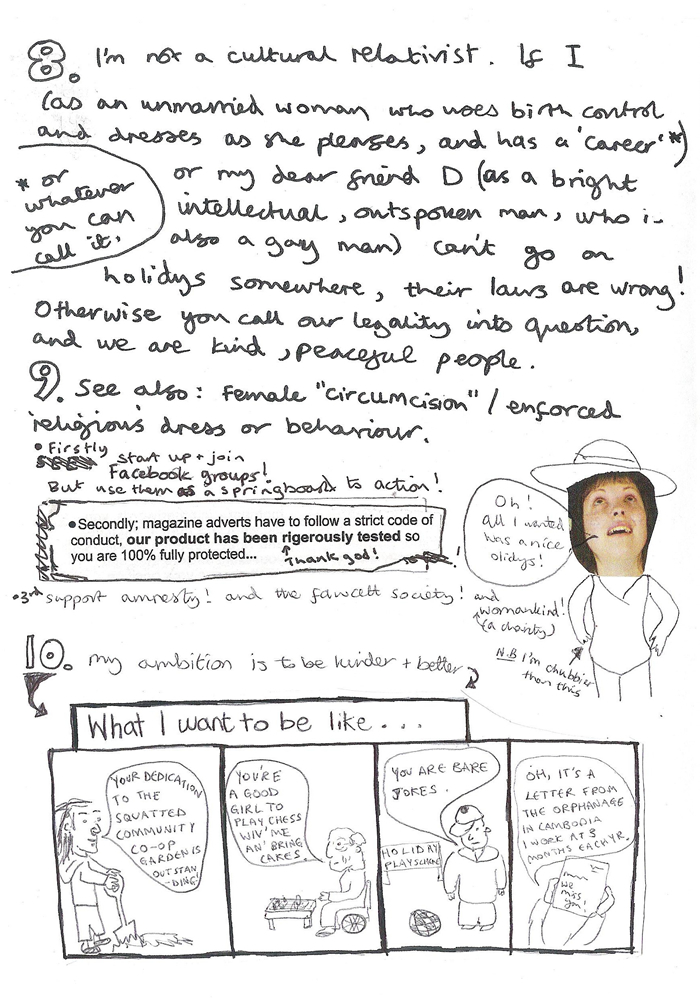 8. I'm not a cultural relativist. If I
(as an unmarried woman who uses birth control
and dresses as she pleases, and has a 'career'*)
* or
whatever
you can
call it.
or my dear friend D (as a bright
intellectual, outspoken man, who is
also a gay man) can't go on
holidys somewhere, their laws are wrong!
Otherwise you call our legality into question,
and we are kind, peaceful people.
9. See also: Female "circumcision" / enforced
religious dress or behaviour.
• Firstly
start up + join
Facebook groups!
But use them as a springboard to action!
• Secondly; magazine adverts have to follow a strict code of
conduct, our product has been rigerously tested so
you are 100% fully protected...
Thank god!
Oh!
all I wanted
was a nice
olidys!
•3rd support amnesty! and the fawcett society! and
womankind!
(a charity)
N.B I'm chubbier
than this
10. my ambition is to be kinder + better
What I want to be like...
YOUR DEDICATION
TO THE
SQUATTED
COMMUNITY
CO-OP
GARDEN IS
OUTSTAN
DING!
YOU'RE
A GOOD
GIRL TO
PLAY CHESS
WIV' ME
AN' BRING
CAKES
YOU ARE BARE
JOKES.
HOLIDAY
PLAYSCHEME
OH, IT'S A
LETTER FROM
THE ORPHANAGE
IN CAMBODIA
I WORK AT 3
MONTHS EACH YR.
we
miss
you!